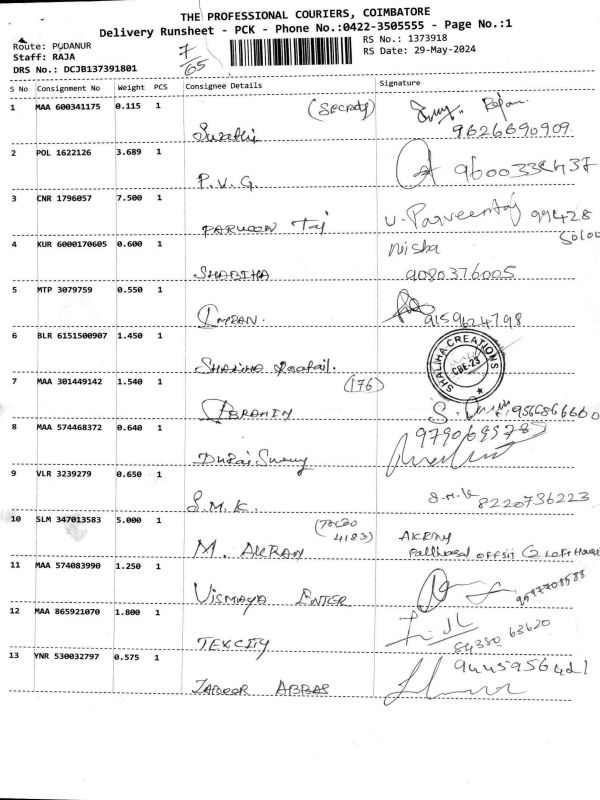 THE PROFESSIONAL COURIERS, COIMBATORE
Delivery Runsheet - PCK - Phone No.:0422-3505555 - Page No.:1
Route: PUDANUR
Staff: RAJA
DRS No.: DCJB137391801
7/65
RS No.: 1373918
RS Date: 29-May-2024
S No Consignment No Weight PCS Consignee Details Signature
1 MAA 600341175 0.115 1 (Secrety) Rajan
9626690909
2 POL 1622126 3.689 1 P.V.G.
3 CNR 1796057 7.500 1 PARVEEN Taj U. Parveentaj 99428
50100
4 KUR 6000170605 0.600 1 SHABIHA Nisha
9080376005
5 MTP 3079759 0.550 1 IMRAN. 9159624798
6 BLR 6151500907 1.450 1 SHALIHA
SHALIHA CREATIONS
CBE-23
7 MAA 301449142 1.540 1 (176) IBRAHIM
8 MAA 574468372 0.640 1 Durai Swamy
9 VLR 3239279 0.650 1 S.M.K. S.M.K
8220736223
10 SLM 347013583 5.000 1 4183) M. AKRAM AKRAM
11 MAA 574083990 1.250 1 VISMAYA ENTER
9597708588
12 MAA 865921070 1.800 1 TEXCITY
84380 63620
13 YNR 530032797 0.575 1 ABBAS
9445956421